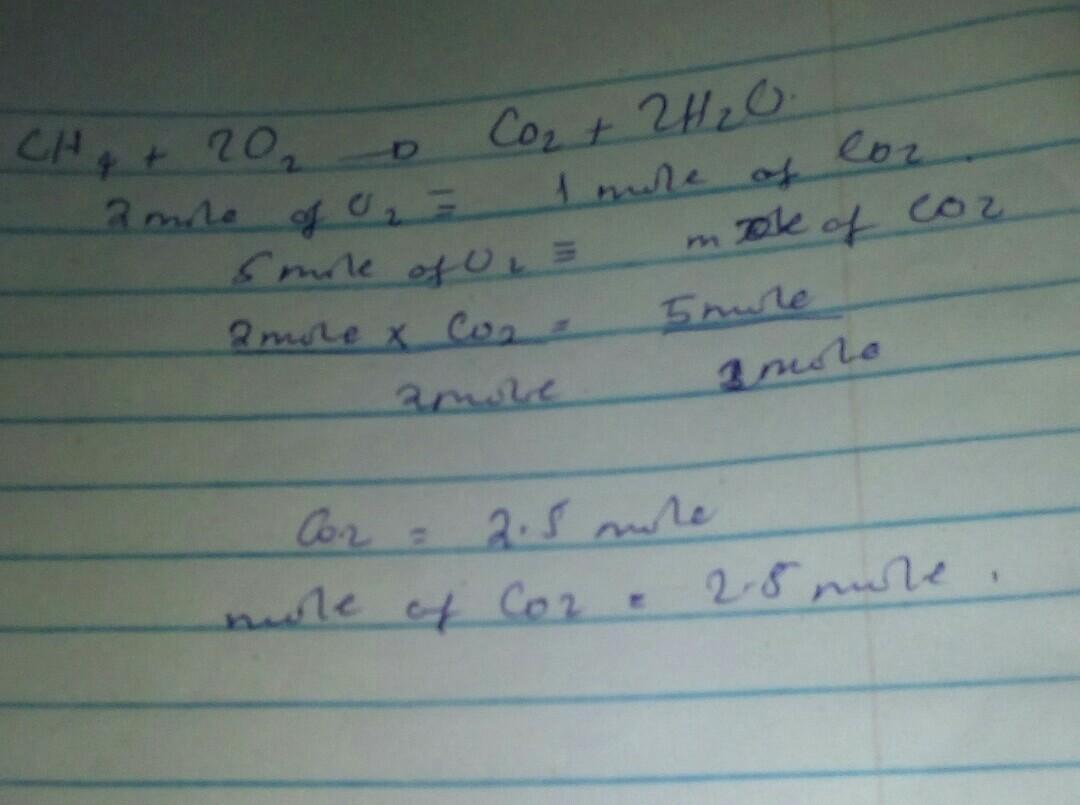 CH4 + 2O2 → CO2 + 2H2O.
2 mole of O2 = 1 mole of CO2.
5 mole of O2 ≡ m of CO2
2mole x CO2 = 5mole
2mole 2mole
CO2 = 2.5 mole
mole of CO2 = 2.5 mole.